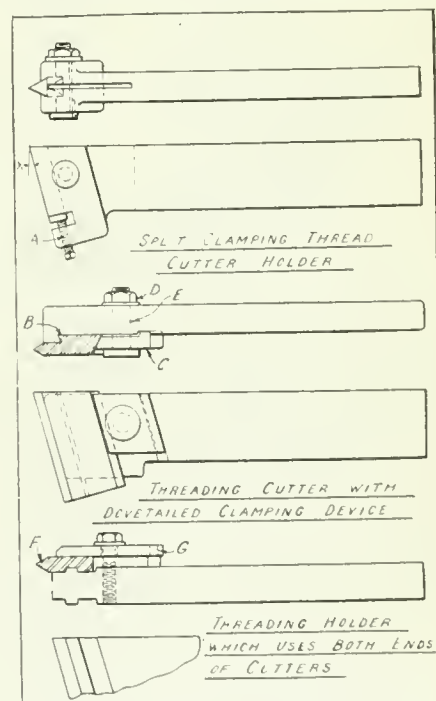 X
A
SPLIT CLAMPING THREAD
CUTTER HOLDER
D
E
B
C
THREADING CUTTER WITH
DOVETAILED CLAMPING DEVICE
F
G
THREADING HOLDER
WHICH USES BOTH ENDS
OF CUTTERS